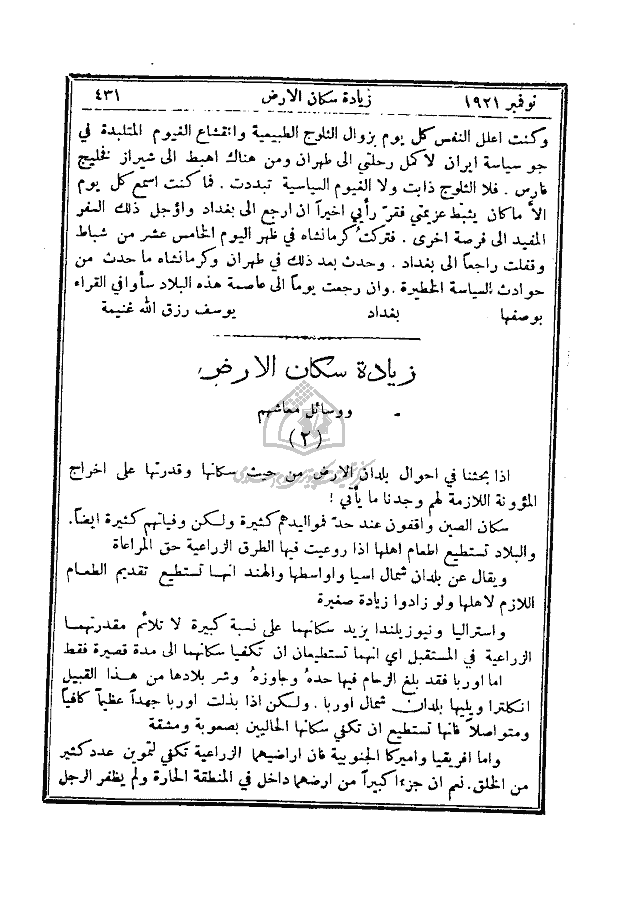 نوفمبر ١٩٢١ زيادة سكان الارض ٤٣١
وكنت اعلل النفس كل يوم بزوال الثلوج الطبيعية وانقشاع الغيوم المتلبدة في
جو سياسة ايران لاكمل رحلتي الى طهران ومن هناك اهبط الى شيراز فخليج
فارس . فلا الثلوج ذابت ولا الغيوم السياسية تبددت . فما كنت اسمع كل يوم
الاَّ ما كان يثبط عزيمتي فقرَّ رأيي اخيراً ان ارجع الى بغداد واؤجل ذلك السفر
المفيد الى فرصة اخرى . فتركتُ كرمانشاه في ظهر اليوم الخامس عشر من شباط
وقفلت راجعاً الى بغداد . وحدث بعد ذلك في طهران وكرمانشاه ما حدث من
حوادث السياسة الخطيرة . وان رجعت يوماً الى عاصمة هذه البلاد سأوافي القراء
بوصفها بغداد يوسف رزق الله غنيمة
زيادة سكان الارض
ووسائل معاشهم
(٢)
اذا بحثنا في احوال بلدان الارض من حيث سكانها وقدرتها على اخراج
المؤونة اللازمة لهم وجدنا ما يأتي !
سكان الصين واقفون عند حدّ فمواليدهم كثيرة ولكن وفياتهم كثيرة ايضاً.
والبلاد تستطيع اطعام اهلها اذا روعيت فيها الطرق الزراعية حق المراعاة
ويقال عن بلدان شمال اسيا واواسطها والهند انها تستطيع تقديم الطعام
اللازم لاهلها ولو زادوا زيادة صغيرة
واستراليا ونيوزيلندا يزيد سكانهما على نسبة كبيرة لا تلائم مقدرتهما
الزراعية في المستقبل اي انهما تستطيعان ان تكفيا سكانهما الى مدة قصيرة فقط
اما اوربا فقد بلغ الزحام فيها حدهُ وجاوزهُ وشر بلادها من هذا القبيل
انكلترا ويليها بلدان شمال اوربا . ولكن اذا بذلت اوربا جهداً عظيماً كافياً
ومتواصلاً فانها تستطيع ان تكفي سكانها الحاليين بصعوبة ومشقة
واما افريقيا واميركا الجنوبية فان اراضيهما الزراعية تكفي لتموين عدد كثير
من الخلق . نعم ان جزءاً كبيراً من ارضهما داخل في المنطقة الحارة ولم يظفر الرجل